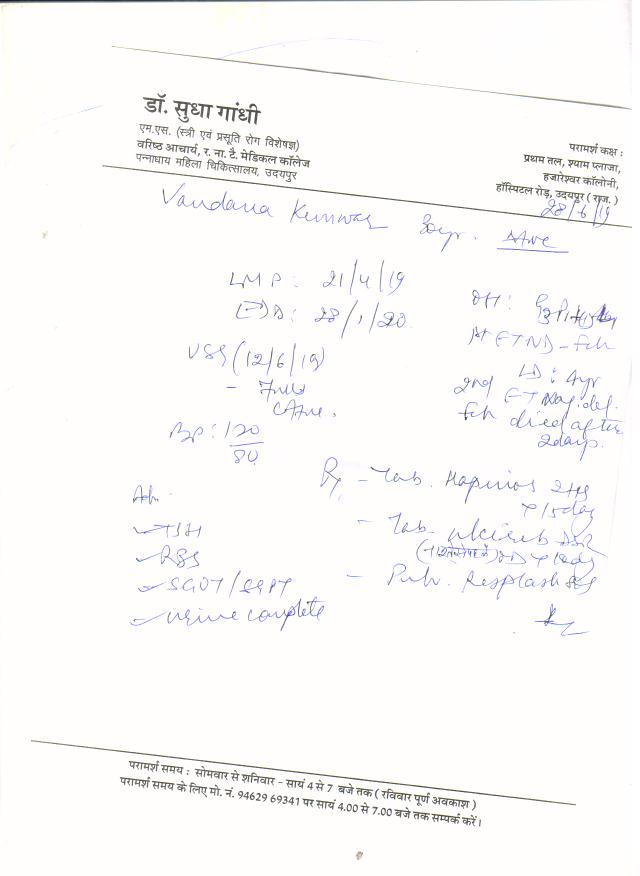 डॉ. सुधा गांधी
एम.एस. (स्त्री एवं प्रसूति रोग विशेषज्ञ)
वरिष्ठ आचार्य, र. ना. टै. मेडिकल कॉलेज
पन्नाधाय महिला चिकित्सालय, उदयपुर
परामर्श कक्ष :
प्रथम तल, श्याम प्लाजा,
हजारेश्वर कॉलोनी,
हॉस्पिटल रोड़, उदयपुर ( राज. )
28/6/19
Vandana Kunwar
LMP : 21/4/19
EDD : 28/1/20
USG (12/6/19)
BP : 120
80
OH :
1st FTND - Fch
LD : 4yr
2nd FT Vag. del.
Fch died after
2days.
Adv.
TSH
RBS
SGOT/SGPT
urine complete
Rx - Tab.
x 15day
- Tab. DSR
- Pulv.
परामर्श समय : सोमवार से शनिवार - सायं 4 से 7 बजे तक ( रविवार पूर्ण अवकाश )
परामर्श समय के लिए मो. नं. 94629 69341 पर सायं 4.00 से 7.00 बजे तक सम्पर्क करें।